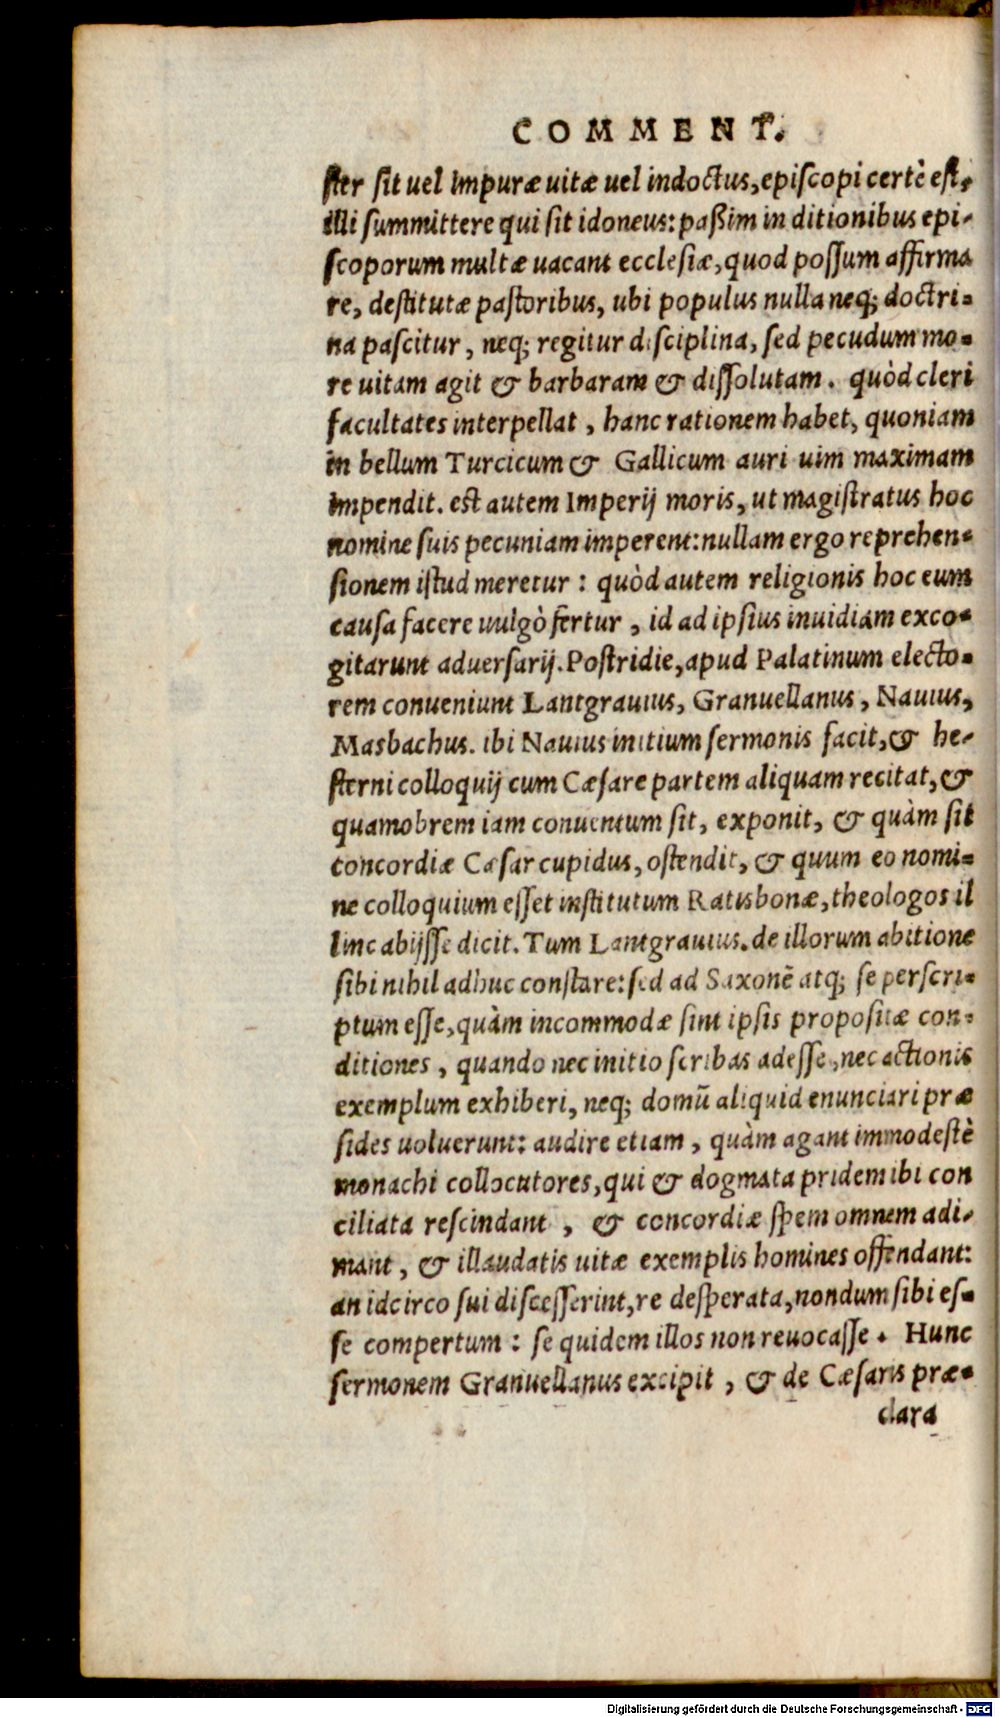 COMMENT.
ster sit uel impuræ uitæ uel indoctus, episcopi certè est,
illi summittere qui sit idoneus: paßim in ditionibus epi-
scoporum multæ uacant ecclesiæ, quod possum affirma
re, destitutæ pastoribus, ubi populus nulla neq; doctri-
na pascitur, neq; regitur disciplina, sed pecudum mo-
re uitam agit & barbaram & dissolutam. quòd cleri
facultates interpellat, hanc rationem habet, quoniam
in bellum Turcicum & Gallicum auri uim maximam
impendit. est autem Imperij moris, ut magistratus hoc
nomine suis pecuniam imperent: nullam ergo reprehen-
sionem istud meretur: quòd autem religionis hoc eum
causa facere uulgò fertur, id ad ipsius inuidiam exco-
gitarunt aduersarij. Postridie, apud Palatinum electo-
rem conueniunt Lantgrauius, Granuellanus, Nauius,
Masbachus. ibi Nauius initium sermonis facit, & he-
sterni colloquij cum Cæsare partem aliquam recitat, &
quamobrem iam conuentum sit, exponit, & quàm sit
concordiæ Cæsar cupidus, ostendit, & quum eo nomi-
ne colloquium esset institutum Ratisbonæ, theologos il
linc abijsse dicit. Tum Lantgrauius. de illorum abitione
sibi nihil adhuc constare: sed ad Saxonē atq; se perscri-
ptum esse, quàm incommodæ sint ipsis propositæ con-
ditiones, quando nec initio scribas adesse, nec actionis
exemplum exhiberi, neq; domū aliquid enunciari præ
sides uoluerunt: audire etiam, quàm agant immodestè
monachi collocutores, qui & dogmata pridem ibi con
ciliata rescindant, & concordiæ spem omnem adi-
mant, & illaudatis uitæ exemplis homines offendant:
an idcirco sui discesserint, re desperata, nondum sibi es-
se compertum: se quidem illos non reuocasse. Hunc
sermonem Granuellanus excipit, & de Cæsaris præ-
clara
Digitalisierung gefördert durch die Deutsche Forschungsgemeinschaft - DFG